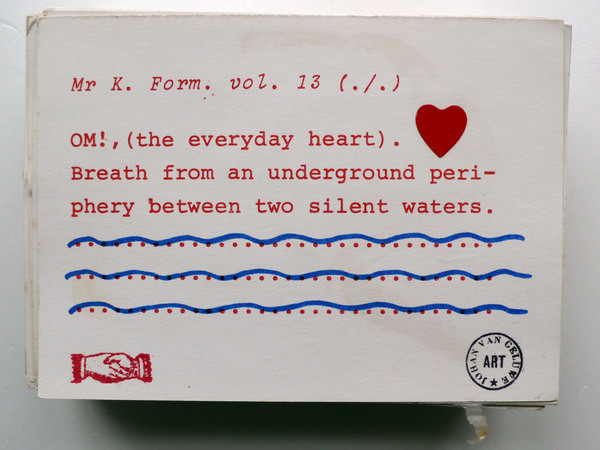 Mr K. Form. vol. 13 (./.)
OM!,(the everyday heart).
Breath from an underground peri-
phery between two silent waters.
JOHAN VAN GELUWE ★
ART